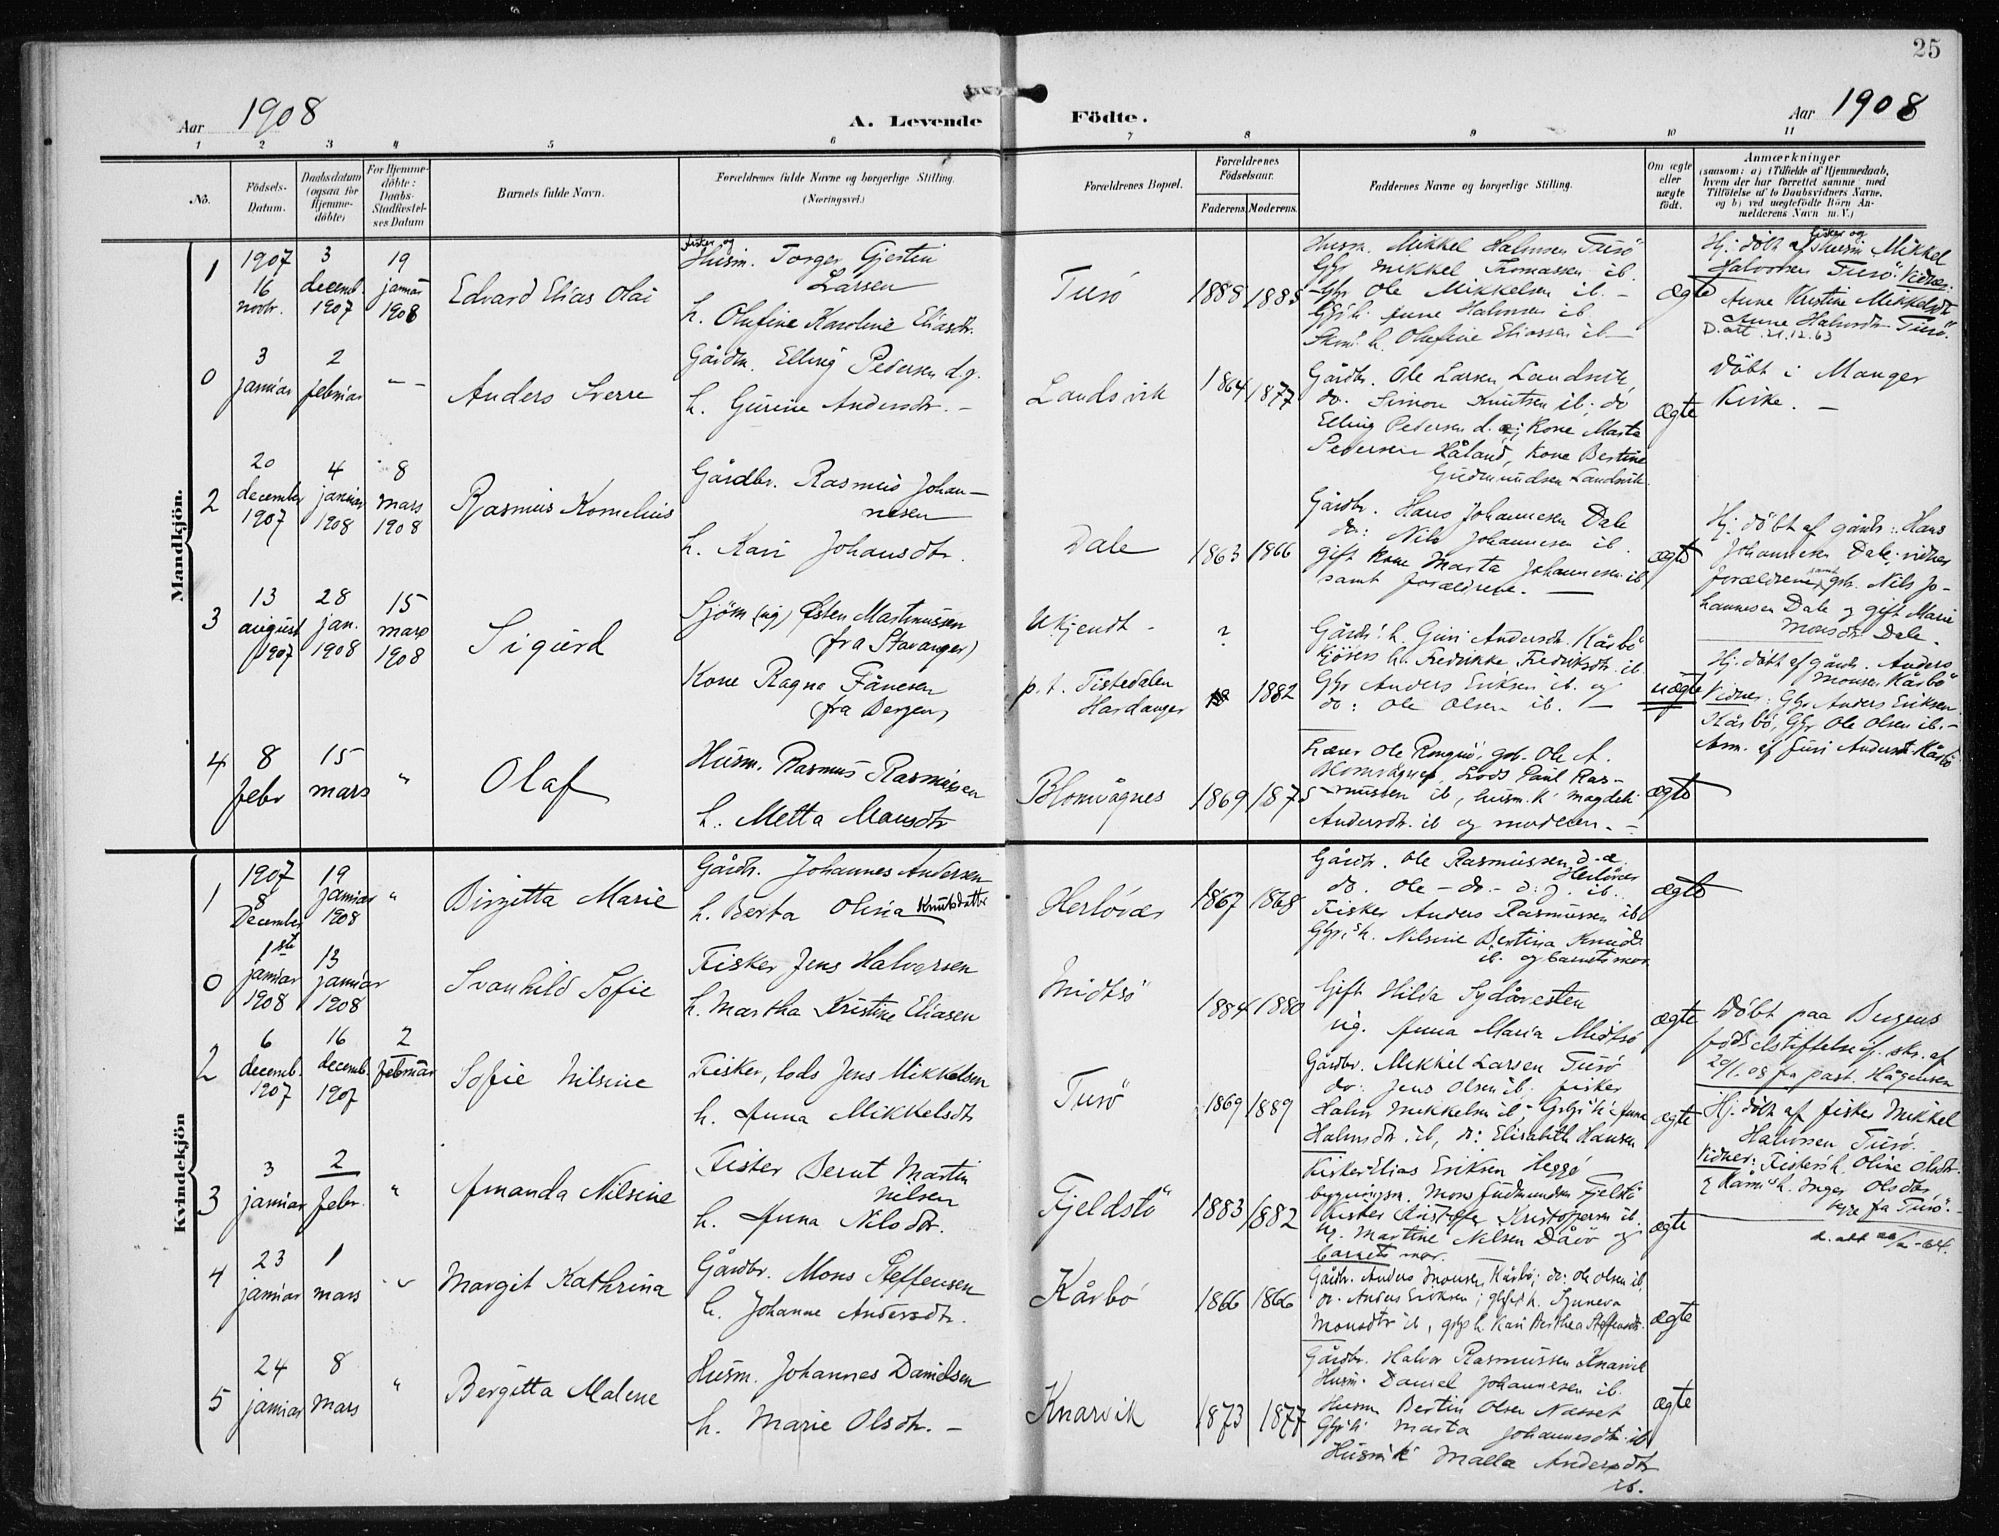 25
Aar 1908
A. Levende Födte.
Aar 1908
1 2 3 4 5 6 7 8 9 10 11
No.
Födsels-
Datum.
Daabsdatum
(ogsaa for
Hjemme-
döbte)
For Hjemme-
döbte:
Daabs-
Stadfæstel-
ses Datum
Barnets fulde Navn.
Forældrenes fulde Navne og borgerlige Stilling.
(Næringsvei.)
Forældrenes Bopæl.
Forældrenes
Födselsaar.
Faderens. Moderens.
Faddernes Navne og borgerlige Stilling.
Om ægte
eller
uægte
födt.
Anmærkninger
(saasom: a) i Tilfælde af Hjemmedaab,
hvem der har forrettet samme med
Tilföielse af to Daabsvidners Navne,
og b) ved uegtefödte Börn An-
melderens Navn m. V.)
Mandkjön.
1
1907
16
novbr.
3
decemb.
1907
19
januar
1908
Edvard Elias Olai
Fisker og
Husm. Torger Gjertin
Larsen
h. Olufine Karoline Eliasdr.
Turö
1888 1885
Husm. Mikkel Halvorsen Turö
Gbr Mikkel Thomassen ib.
Gbr Ole Mikkelsen ib. –
ægte
Hj. döbt af Fisker og Husm Mikkel
Halvorsen Turö. Vidner:
Anne Kristine Mikkelsdt
D. att. 21.12.63
0
3
januar
2
februar
– –
Anders Sverre
Gårdbr. Elling Pedersen d.y.
h. Gurine Andersdtr. –
Landsvik
1864 1877
Gårdbr. Ole Larsen Landsvik,
do. Simon Knutsen ib, do
Elling Pedersen d. æ; Kone Marta
Pedersen Håland, Kone Bertine
Gudmundsen Landsvik.
ægte
Döbt i Manger
Kirke. –
2
20
december
1907
4
januar
1908
8
mars
1908
Rasmus Kornelius
Gårdbr. Rasmus Johan-
nesen
h. Kari Johansdtr.
Dale
1863 1866
Gårdbr. Hans Johannesen Dale
do: Nils Johannesen ib.
gift Kone Marta Johannesen ib
samt forældrene. –
ægte
Hj: döbt af gårdb: Hans
Johannesen Dale, vidner
forældrene samt gbr. Nils Jo-
hannesen Dale og gift Marie
Monsdtr Dale.
3
13
august
1907
28
jan.
1908
15
mars
1908
Sigurd
Sjöm (ug) Østen Martinussen
(fra Stavanger)
Kone Ragna Fånesen
(fra Bergen)
Ukjendt –
p. t. Tistedalen
Hardanger
?
1882
Gårdb. h. Guri Andersdtr. Kårbö
h. Fredrikke Fredriksdtr. ib.
Gbr Anders Eriksen ib. og
do: Ole Olsen ib. –
uægte
Hj. döbt af gårdb. Anders
Monsen Kårbö
Vidner: Gbr Anders Eriksen
Kårbö, Gbr Ole Olsen ib. –
Anm. af Guri Andersdt. Kårbö
4
8
febr
15
mars
"
Olaf
Husm. Rasmus Rasmussen
h. Metta Mansdtr
Blomvågnes
1869 1875
Lærer Ole Rongnö, gbr. Ole A.
Blomvågnes, Lods Paul Ras-
mussen ib, husm. k. Magdeli
Andersdtr. ib og moderen. –
ægte
Kvindekjön
1
1907
8
December
19
januar
1908
"
Birgitta Marie
Gårdbr. Johannes Andersen
h. Berta Olina Knutsdatter
Herlövær
1867 1868
Gårdbr. Ole Rasmussen d.æ.
Herlövær
do. Ole – do. – d: y. ib.
Fisker Anders Rasmussen ib
Gbr.'s h. Nilsine Bertina Knudsd.
ib. og barnets mor
ægte
0
1ste
januar
1908
13
januar
1908
Svanhild Sofie
Fisker Jens Halvorsen
h. Martha Kristine Eliasen
Midtö
1884 1880
Gift Hilda Sydåresten
ug. Anna Maria Midtsö
ægte
Döbt paa Bergens
födselstiftelse iflg. skr. af
20/1. 08 fra past. Hågensen
2
6
decemb.
1907
16
decemb.
1907
2
februar
Sofie Nilsine
Fisker, lods Jens Mikkelsen
h. Anna Mikkelsdtr
Turö
1869 1889
Gårdbr. Mikkel Larsen Turö
do: Jens Olsen ib. fisker
Halvor Mikkelsen ib – Grbr.'s h. Anna
Halvorsdtr. ib, do: Elisabeth Hansen
ægte
Hj. döbt af fisker Mikkel
Halvorsen Turö.
Vidner: Fisker's h. Oline Olsdtr.
h. Inger Olsdtr
begge fra Turö. –
3
3
januar
2
febr.
"
Amanda Nilsine
Fisker Bernt Martin
Nilsen
h. Anna Nilsdtr.
Fjeldstö
1883 1882
Fisker Elias Eriksen Heggö
bygningsm. Mons Gudmundsen Fjelstö
Fisker Kristofer Kristofersen ib.
ug. Martine Nilsen Dåvö og
barnets mor.
ægte
d. att
4
23
januar
1
mars
"
Margit Kathrina
Gårdbr. Mons Steffensen
h. Johanne Andersdtr.
Kårbö
1866 1866
Gårdbr. Anders Monsen Kårbö; do: Ole Olsen ib,
do. Anders Eriksen; gbr's h. Synneva
Monsdtr ib, gbr's h. Kari Berthea Steffensdtr.
ægte
5
24
januar
8
mars
"
Bergitta Malene
Husm. Johannes Danielsen
h. Marie Olsdtr. –
Knarvik
1873 1877
Gårdbr. Halvor Rasmussen Knarvik
Husm. Daniel Johannesen ib.
Husm Bertin Olsen Nasset
Gbr's h. Marta Johannesdtr. ib
Husm. k. Malla Andersdtr
ib.
ægte